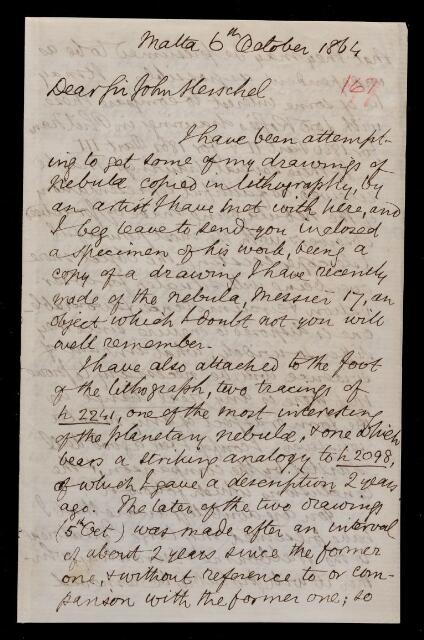 Malta 6th October 1864
Dear Sir John Herschel
167
I have been attempt-
ing to get some of my drawings of
Nebulæ copied in lithography, by
an artist I have met with here, and
I beg leave to send you inclosed
a specimen of his work, being a
copy of a drawing I have recently
made of the nebula, Messier 17, an
object which I doubt not you will
well remember.
I have also attached to the foot
of the lithograph, two tracings of
h 2241, one of the most interesting
of the planetary nebulæ, & one which
bears a striking analogy to h 2098,
of which I gave a description 2 years
ago. The later of the two drawings
(5th Oct) was made after an interval
of about 2 years since the former
one, & without reference to or com-
parison with the former one; so